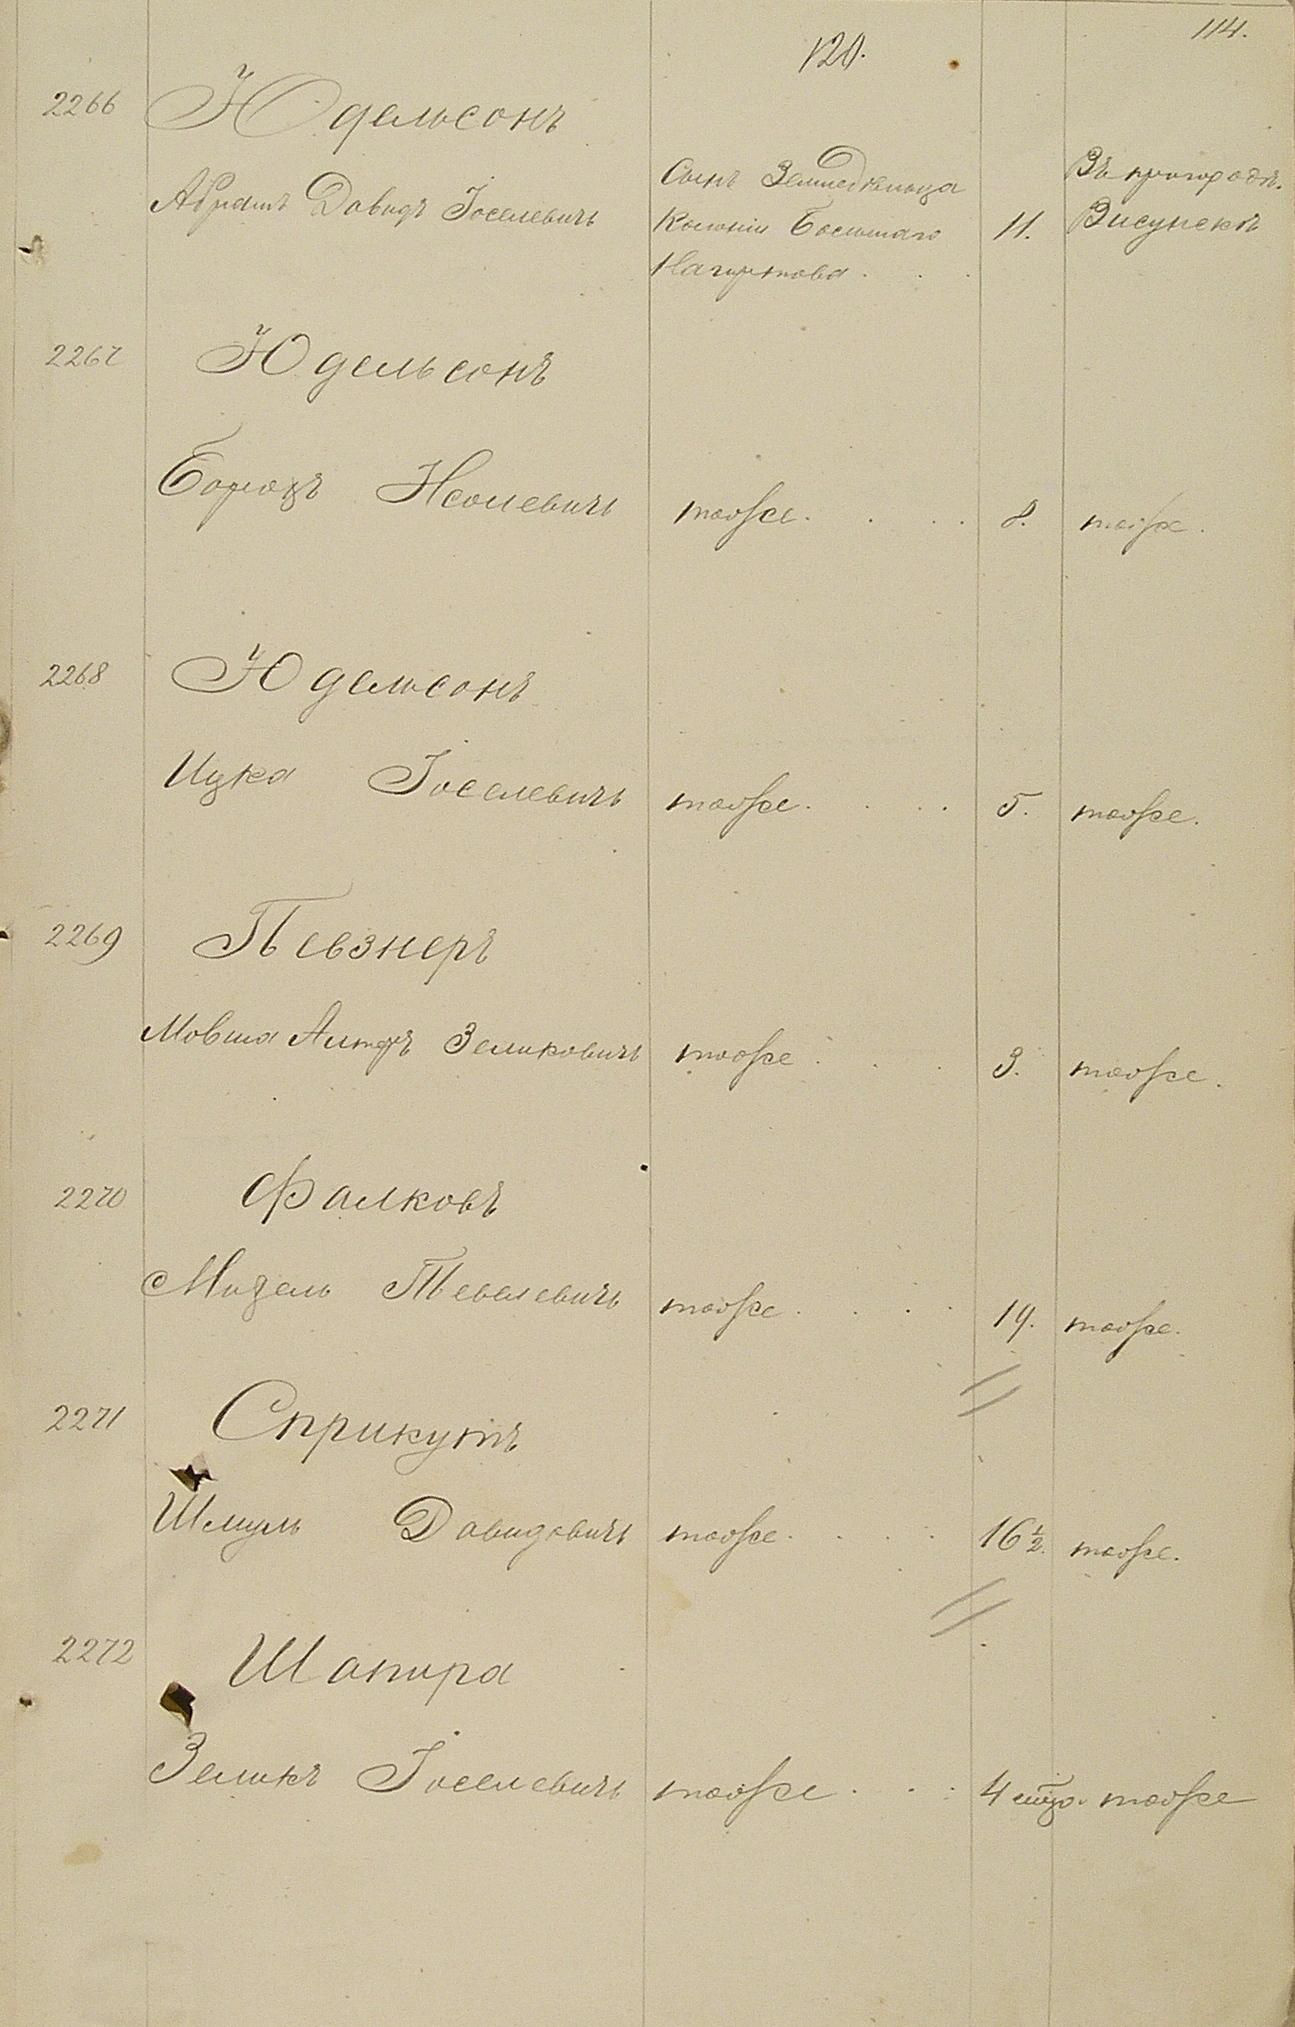 114.
120.
2266 Юдельсонъ
Абрамъ Давидъ Іоселевичъ
Сынъ Земледѣльца
Колоніи Большаго
Нагартова . . .
11.
Въ пригородѣ.
Висунскъ
2267 Юдельсонъ
Борохъ Іоселевичъ тоже. . . . 8. тоже.
2268 Юдельсонъ
Ицка Іоселевичъ тоже. . . . 5. тоже.
2269 Певзнеръ
Мовша Алтеръ Зеликовичъ тоже . . . 3. тоже.
2270 Фалковъ
Мидель Тевелевичъ тоже . . . . 19. тоже.
2271 Сприкутъ
Шмуль Давидовичъ тоже. . . . 16 1/2. тоже.
2272 Шапира
Зеликъ Іоселевичъ тоже . . . 4 мѣсяц. тоже